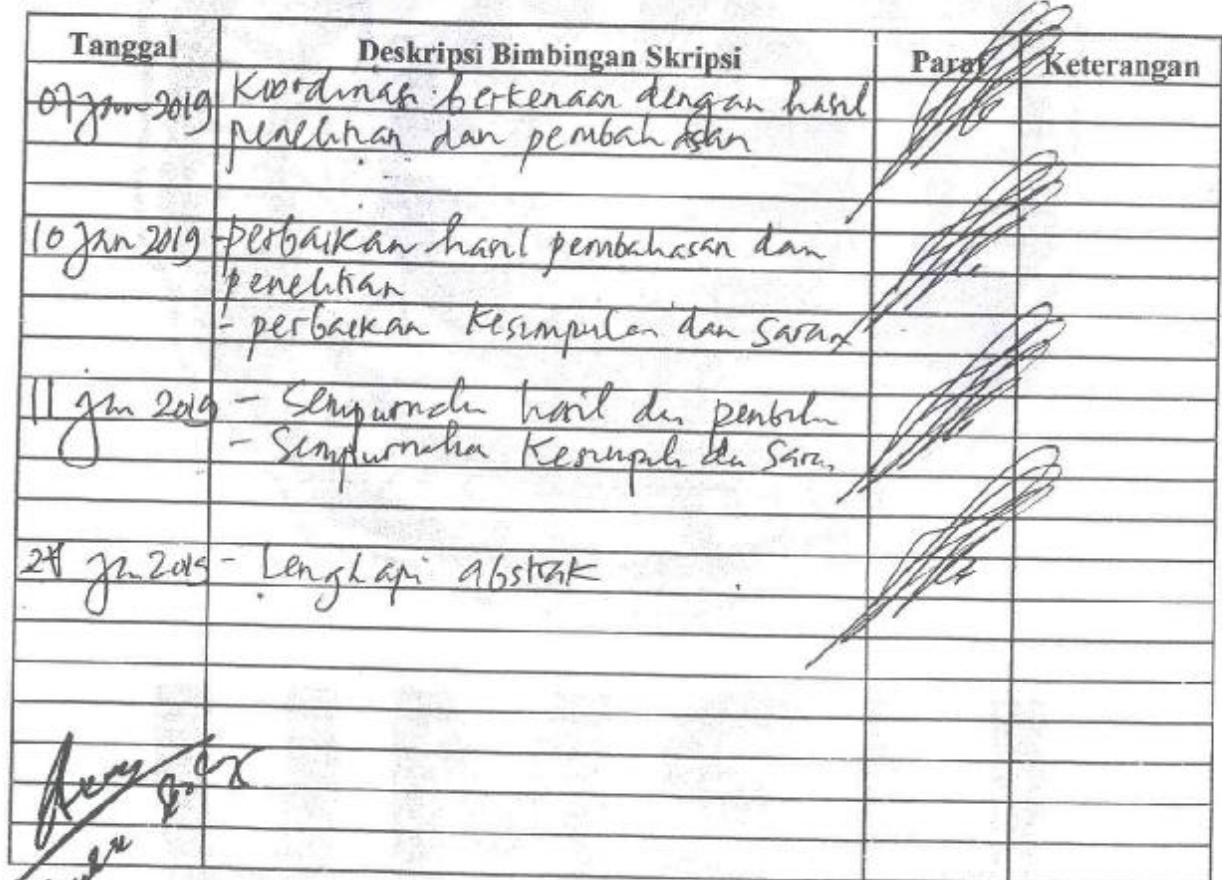 Tanggal Deskripsi Bimbingan Skripsi Paraf Keterangan
07 Jan 2019 Koordinasi berkenaan dengan hasil
penelitian dan pembahasan
10 Jan 2019 - perbaikan hasil pembahasan dan
penelitian
- perbaikan Kesimpulan dan Saran
11 Jan 2019 - Sempurnakan hasil dan
- Sempurnakan Kesimpulan dan Saran
Jan 2019 - Lengkapi abstrak